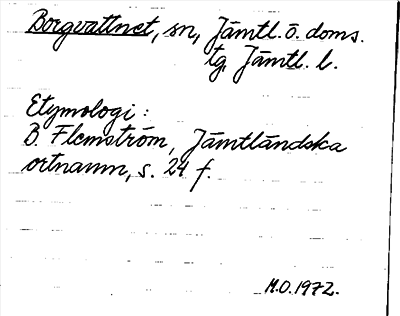 Borgvattnet, sn, Jämtl. ö. doms.
tg, Jämtl. l.
Etymologi:
B. Flemström, Jämtländska
ortnamn, s. 24 f.
M.O. 1972.